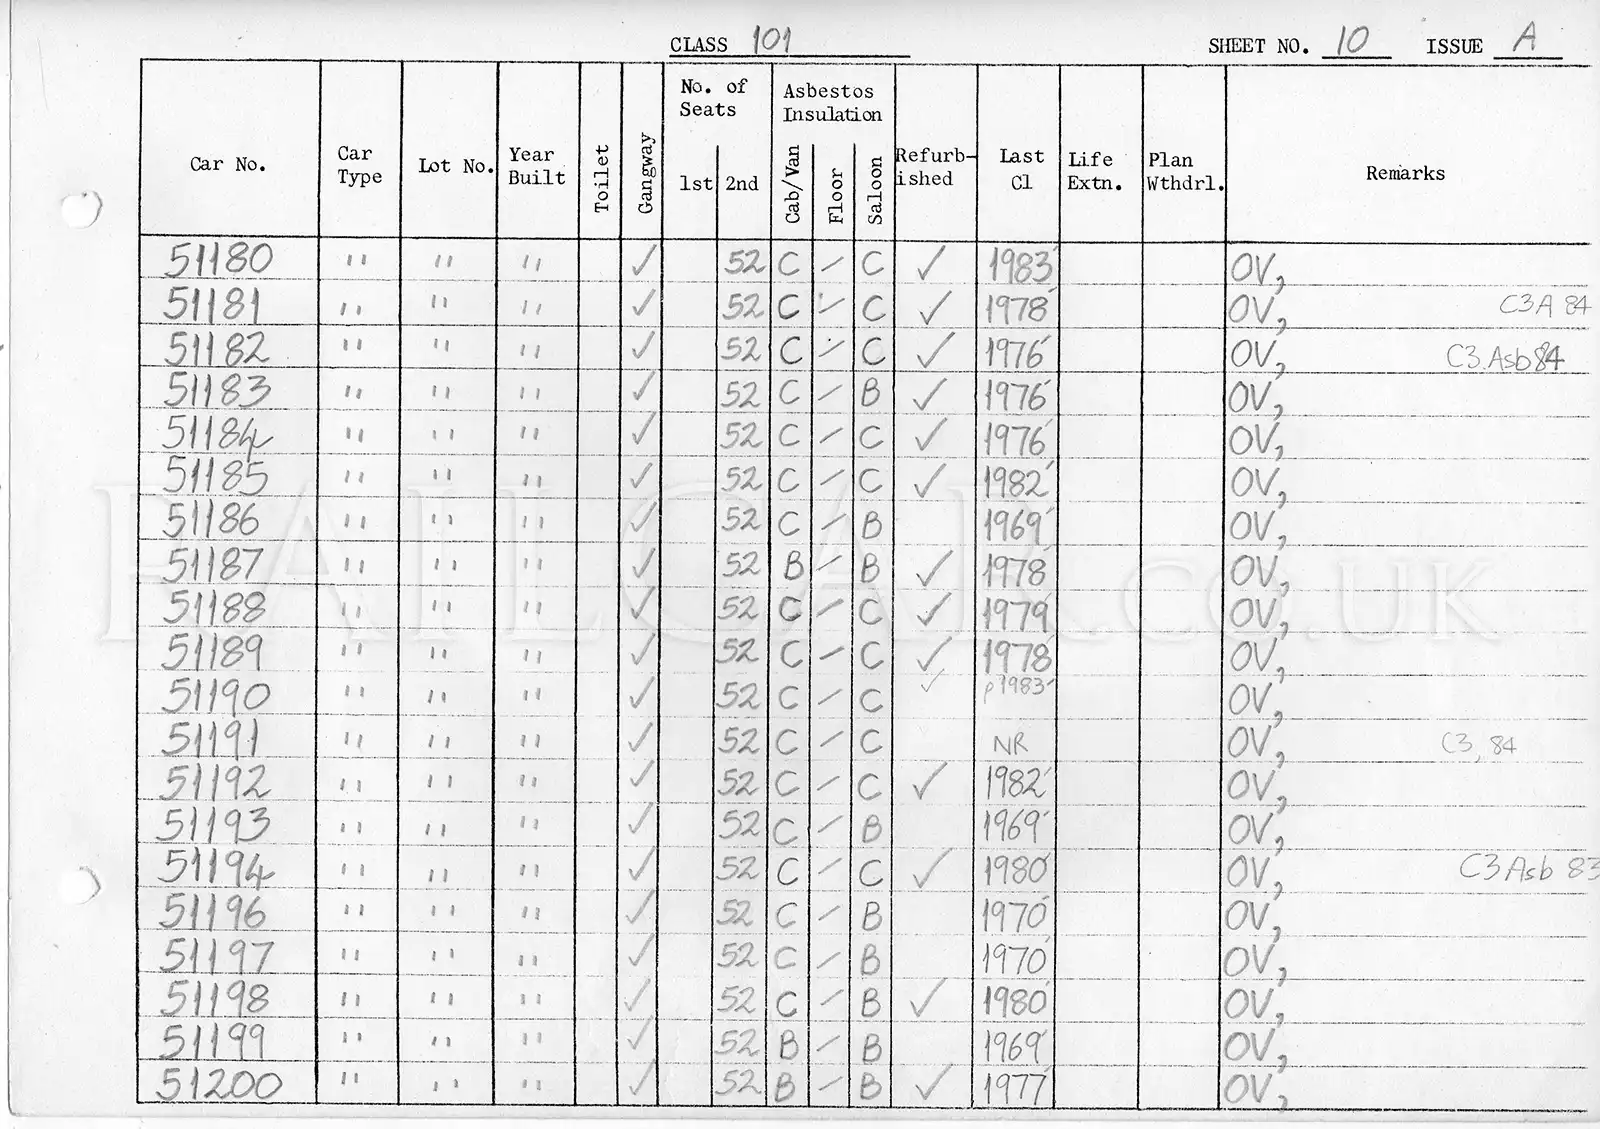 CLASS 101 SHEET NO. 10 ISSUE A
No. of Seats Asbestos Insulation
Car No. Car Type Lot No. Year Built Toilet Gangway 1st 2nd Cab/Van Floor Saloon Refurb-ished Last Cl Life Extn. Plan Wthdrl. Remarks
51180 " " " ✓ 52 C / C ✓ 1983 OV,
51181 " " " ✓ 52 C / C ✓ 1978 OV, C3A 84
51182 " " " ✓ 52 C / C ✓ 1976 OV, C3.Asb84
51183 " " " ✓ 52 C / B ✓ 1976 OV,
51184 " " " ✓ 52 C / C ✓ 1976 OV,
51185 " " " ✓ 52 C / C ✓ 1982 OV,
51186 " " " ✓ 52 C / B 1969 OV,
51187 " " " ✓ 52 B / B ✓ 1978 OV,
51188 " " " ✓ 52 C / C ✓ 1979 OV,
51189 " " " ✓ 52 C / C ✓ 1978 OV,
51190 " " " ✓ 52 C / C ✓ p1983 OV,
51191 " " " ✓ 52 C / C NR OV, C3, 84
51192 " " " ✓ 52 C / C ✓ 1982 OV,
51193 " " " ✓ 52 C / B 1969 OV,
51194 " " " ✓ 52 C / C ✓ 1980 OV, C3 Asb 83
51196 " " " ✓ 52 C / B 1970 OV,
51197 " " " ✓ 52 C / B 1970 OV,
51198 " " " ✓ 52 C / B ✓ 1980 OV,
51199 " " " ✓ 52 B / B 1969 OV,
51200 " " " ✓ 52 B / B ✓ 1977 OV,
RAILCAR.CO.UK